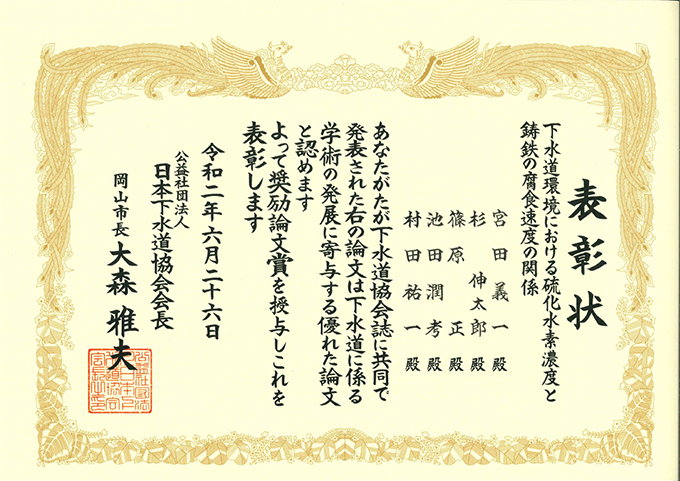 表彰状
下水道環境における硫化水素濃度と
鋳鉄の腐食速度の関係
宮田義一殿
杉伸太郎殿
篠原正殿
池田潤考殿
村田祐一殿
あなたがたが下水道協会誌に共同で
発表された右の論文は下水道に係る
学術の発展に寄与する優れた論文
と認めます
よって奨励論文賞を授与しこれを
表彰します
令和二年六月二十六日
公益社団法人
日本下水道協会会長
岡山市長 大森雅夫